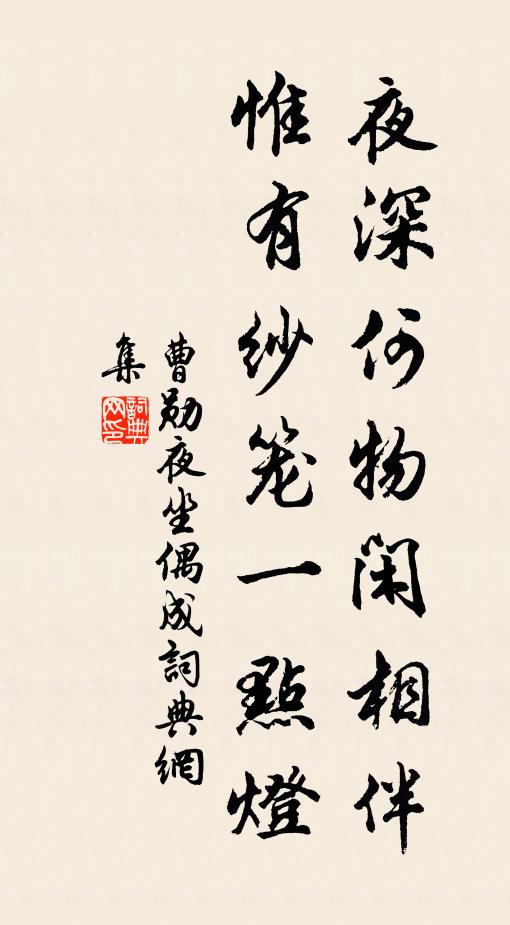 夜深何物閑相伴
惟有紗笼一點燈
曹勛夜坐偶成詞典網
集
詞典网印